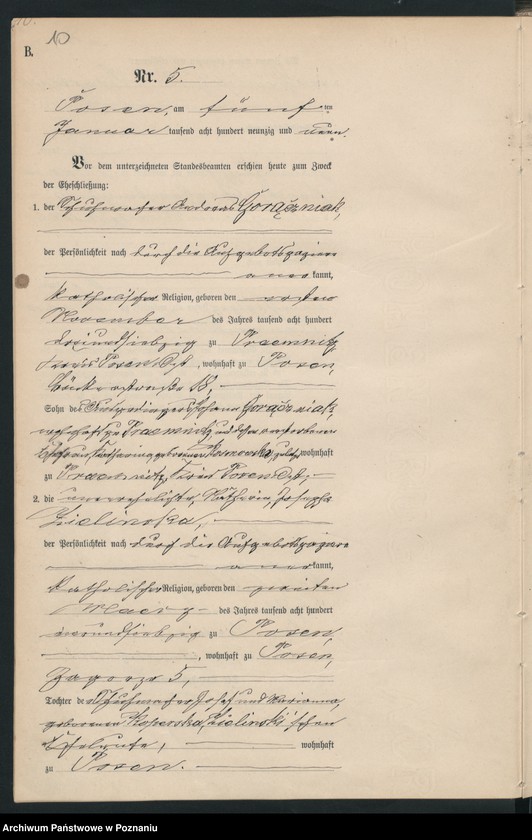 10
B.
Nr. 5.
Posen, am fünften
Januar tausend acht hundert neunzig und neun.
Vor dem unterzeichneten Standesbeamten erschien heute zum Zweck
der Eheschließung:
1. der Schuhmacher Andreas Gorączniak,
der Persönlichkeit nach durch die Aufgebotspapiere
anerkannt,
katholischer Religion, geboren den ersten
November des Jahres tausend acht hundert
dreiundsiebzig zu
Kreis Posen Ost, wohnhaft zu Posen,
18,
Sohn des Johann Gorączniak,
wohnhaft zu und dessen verstorbenen
Ehefrau geborenen zuletzt wohnhaft
zu Kreis Posen Ost,
2. die unverehelichte Josepha
Zielinska,
der Persönlichkeit nach durch die Aufgebotspapiere
anerkannt,
katholischer Religion, geboren den zweiten
Maerz des Jahres tausend acht hundert
zu Posen,
, wohnhaft zu Posen,
Zagorze 5,
Tochter der Schuhmacher Josef und Marianna,
geborenen Zielinski'schen
Eheleute, wohnhaft
zu Posen.
Archiwum Państwowe w Poznaniu